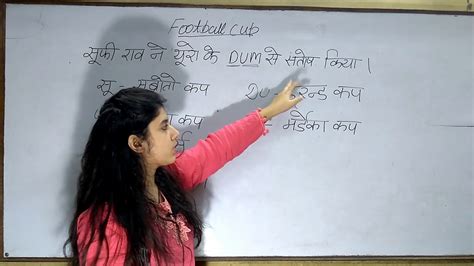 Football cub
सूफी राव ने यूरो के DUM से संतोष किया।
सू - सुब्रोतो कप DU - रन्ड कप
कप - मर्डेका कप